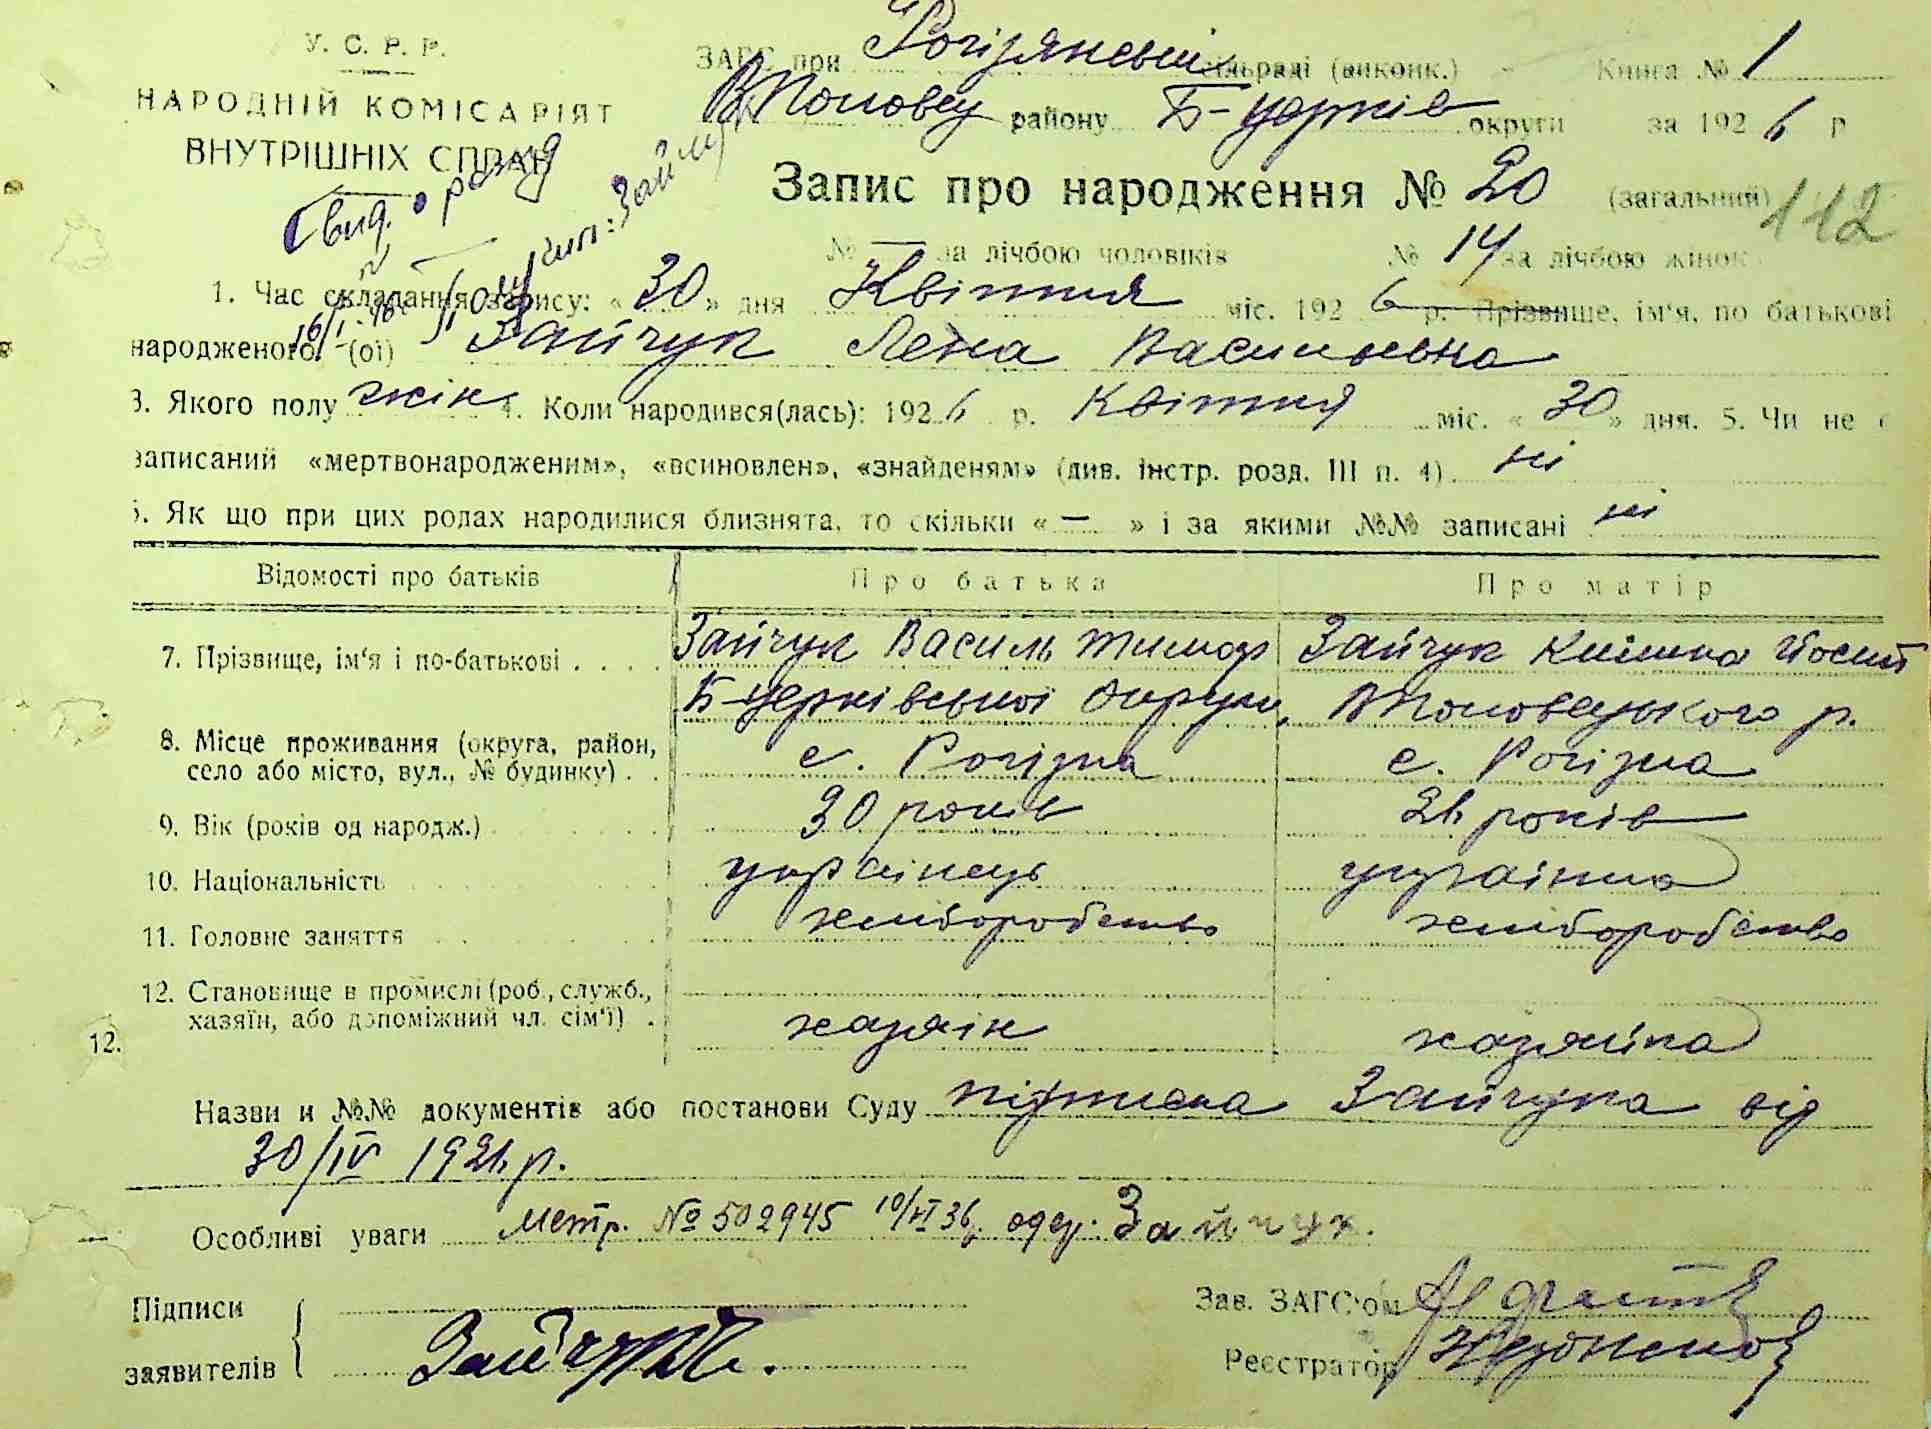 У. С. Р. Р.
НАРОДНІЙ КОМІСАРІЯТ
ВНУТРІШНІХ СПРАВ
ЗАГС при Рогізянській сільраді (виконк.) Книга № 1
району Б-Церків округи за 1926 р
Запис про народження № 20 (загальний) 112
№ — за лічбою чоловіків № 14 за лічбою жінок
Свид. о рожд
1. Час складання запису: «30» дня Квітня міс. 1926 р. Прізвище, ім'я, по батькові
народженого (ої) Зайчук Лена Васильевна
3. Якого полу жін 4. Коли народився(лась): 1926 р. Квітня міс. «30» дня. 5. Чи не є
записаний «мертвонародженим», «всиновлен», «знайденям» (див. інстр. розд. III п. 4) ні
6. Як що при цих родах народилися близнята, то скільки « — » і за якими №№ записані ні
Відомості про батьків Про батька Про матір
7. Прізвище, ім'я і по-батькові . . . . Зайчук Василь Тимоф Зайчук Йосип
Б-Церківської Округи,
8. Місце проживання (округа, район,
село або місто, вул., № будинку) . . с. Рогізна с. Рогізна
9. Вік (років од народж.) 30 років 26 років
10. Національність українець українка
11. Головне заняття хліборобство хліборобство
12. Становище в промислі (роб., служб.,
хазяїн, або допоміжний чл. сім'ї) . хазяїн хазяйка
12.
Назви и №№ документів або постанови Суду підписка Зайчука від
30/IV 1926 р.
Особливі уваги Метр. № 502945 одер. Зайчук.
Підписи
заявителів Зайчук
Зав. ЗАГС'ом
Реєстратор